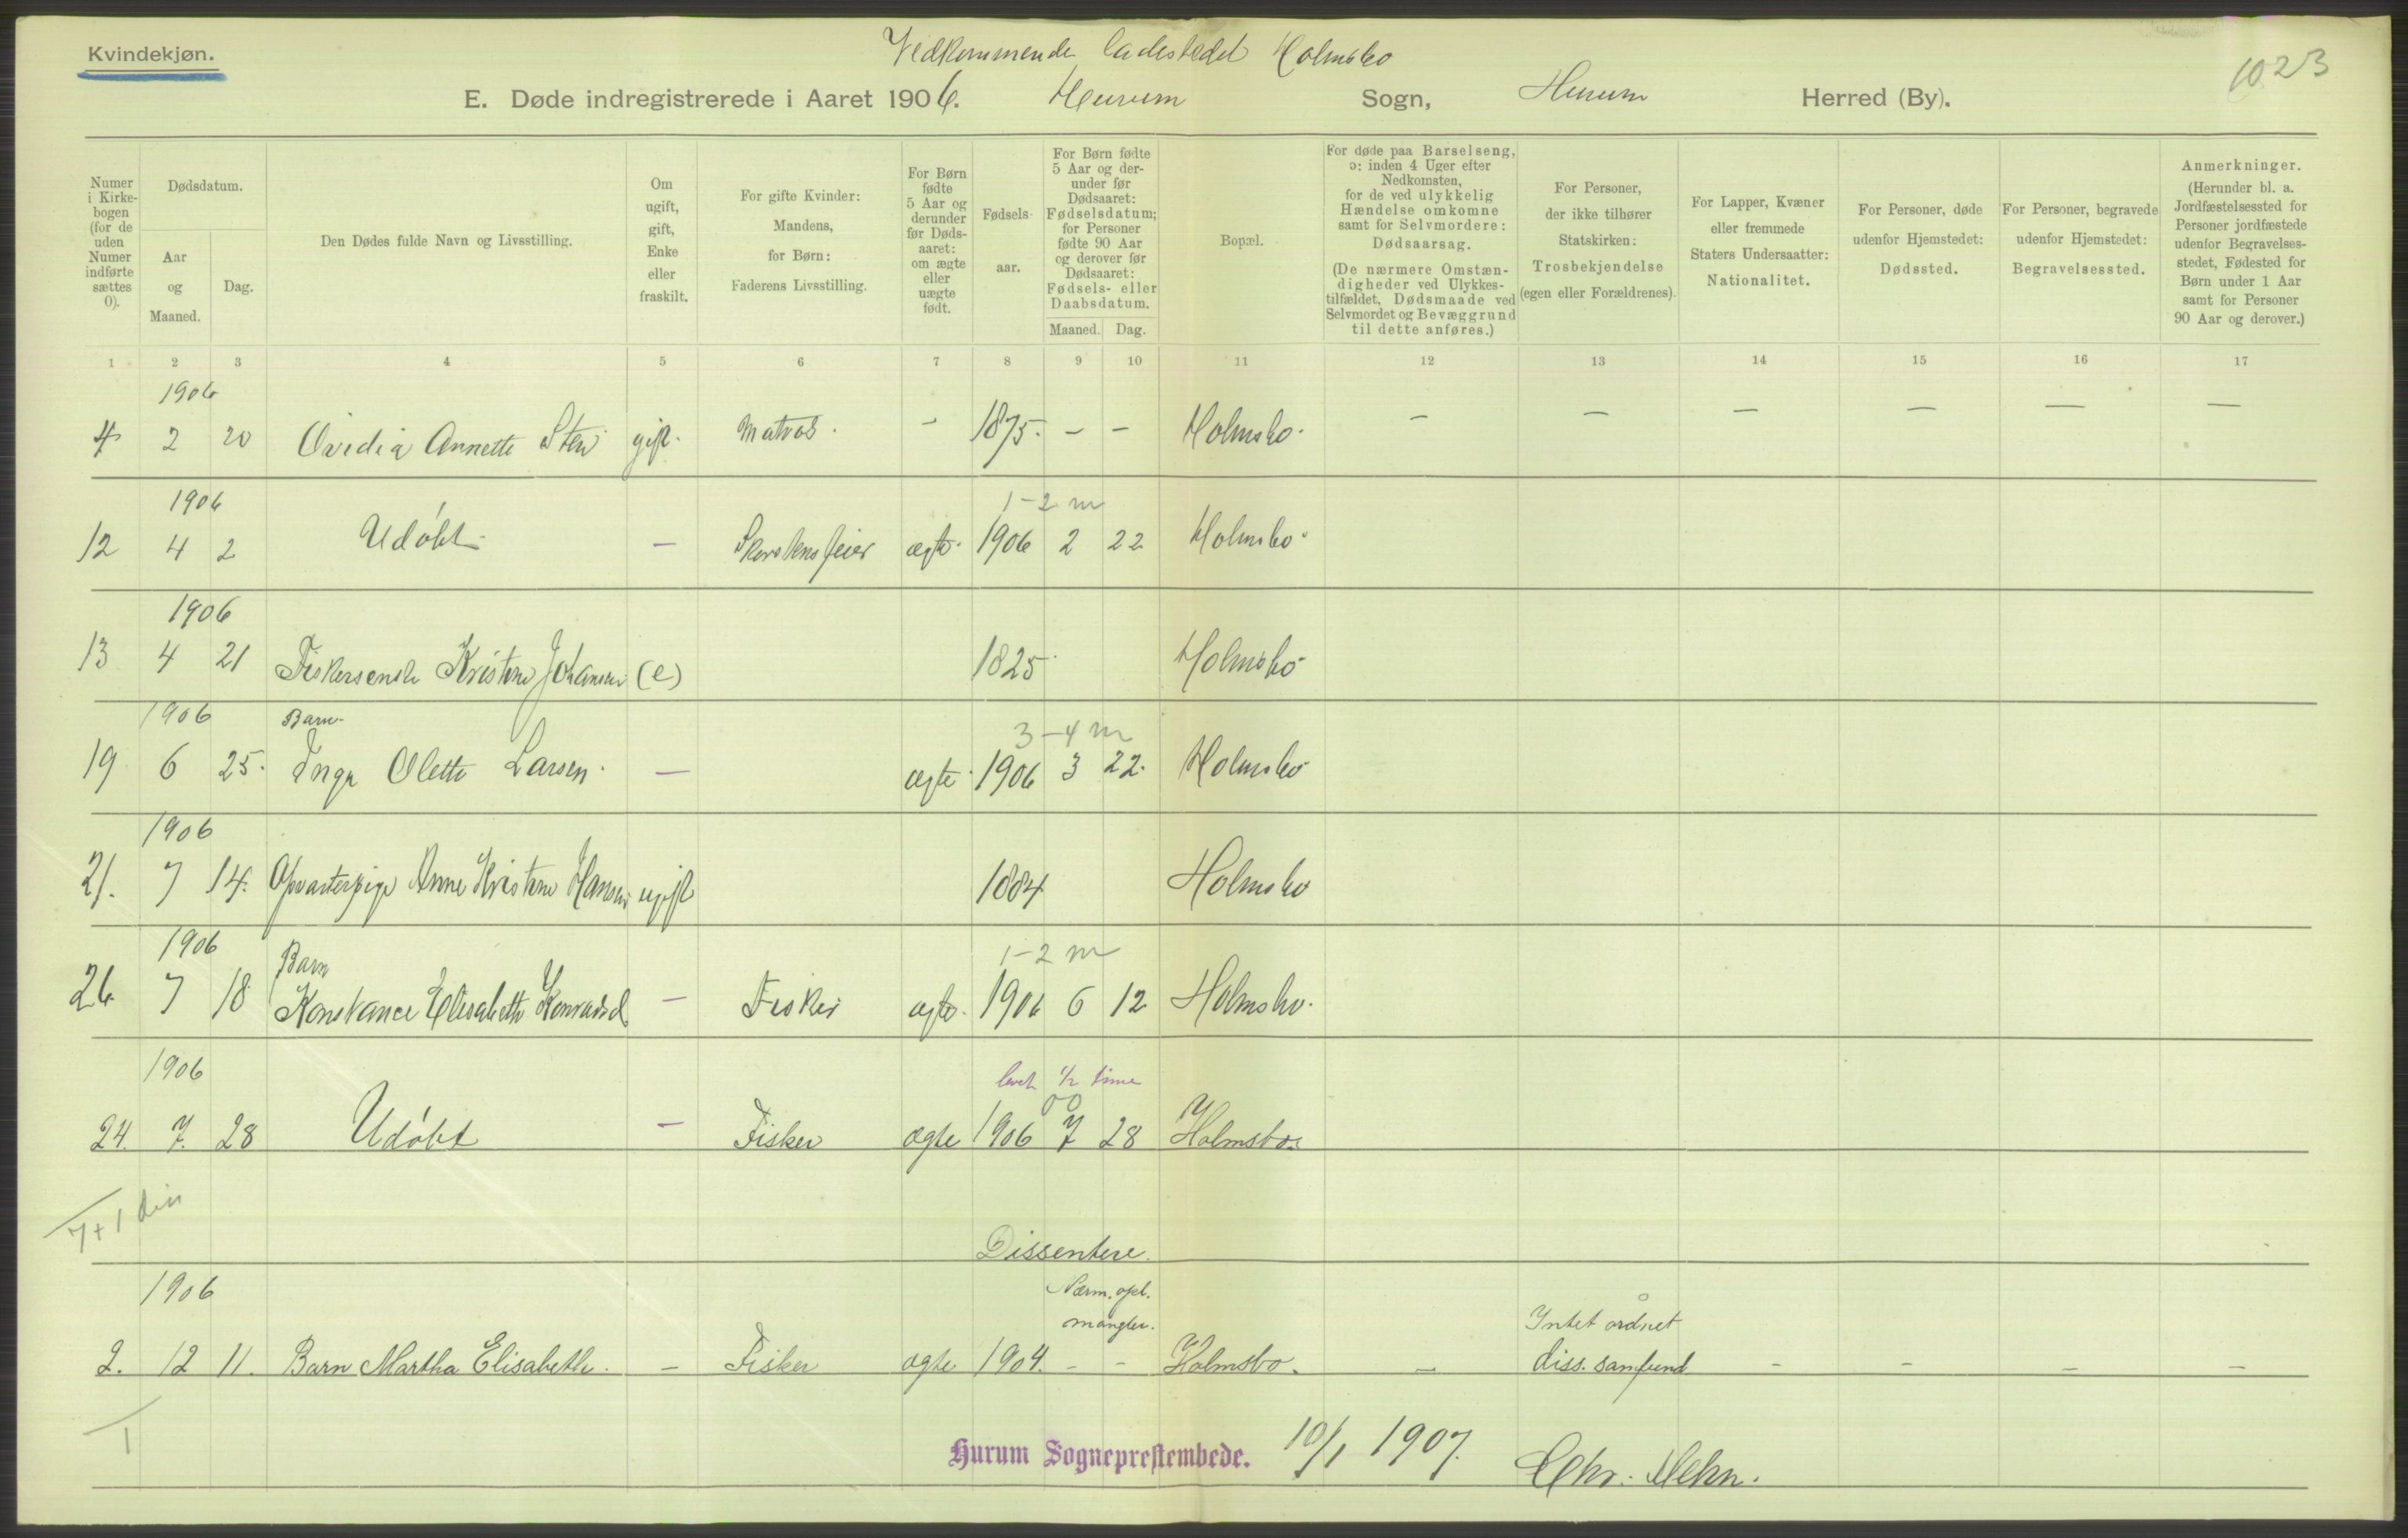 Kvindekjøn.
Vedkommende ladestedet Holmsbo
1023
E. Døde indregistrerede i Aaret 1906. Hurum Sogn, Hurum Herred (By).
Numer i Kirkebogen (for de uden Numer indførte sættes 0).
Dødsdatum.
Aar og Maaned.
Dag.
Den Dødes fulde Navn og Livsstilling.
Om ugift, gift, Enke eller fraskilt.
For gifte Kvinder: Mandens, for Børn: Faderens Livsstilling.
For Børn fødte 5 Aar og derunder før Dødsaaret: om ægte eller uægte født.
Fødselsaar.
For Børn fødte 5 Aar og derunder før Dødsaaret: Fødselsdatum; for Personer fødte 90 Aar og derover før Dødsaaret: Fødsels- eller Daabsdatum.
Maaned. Dag.
Bopæl.
For døde paa Barselseng, ɔ: inden 4 Uger efter Nedkomsten, for de ved ulykkelig Hændelse omkomne samt for Selvmordere: Dødsaarsag.
(De nærmere Omstændigheder ved Ulykkestilfældet, Dødsmaade ved Selvmordet og Bevæggrund til dette anføres.)
For Personer, der ikke tilhører Statskirken: Trosbekjendelse (egen eller Forældrenes).
For Lapper, Kvæner eller fremmede Staters Undersaatter: Nationalitet.
For Personer, døde udenfor Hjemstedet: Dødssted.
For Personer, begravede udenfor Hjemstedet: Begravelsessted.
Anmerkninger.
(Herunder bl. a. Jordfæstelsessted for Personer jordfæstede udenfor Begravelsesstedet, Fødested for Børn under 1 Aar samt for Personer 90 Aar og derover.)
1 2 3 4 5 6 7 8 9 10 11 12 13 14 15 16 17
1906
4 2 20 Ovidia Annette Sten gift. Matros. - 1875. - - Holmsbo. - - - - - -
1906 1-2 m
12 4 2 Udøbt - Skorstensfeier ægte. 1906 2 22 Holmsbo.
1906
13 4 21 Fiskersenke Kristine Johansen (e) 1825. Holmsbo
1906 Barn. 3-4 m
19 6 25. Inga Olette Larsen. - ægte. 1906 3 22. Holmsbo
1906
21. 7 14. Opvarterpige Anne Kristine Hansen ugift 1884 Holmsbo
1906 Barn 1-2 m
26 7 18 Konstance Elisabeth Konradsd - Fisker ægte. 1906 6 12 Holmsbo.
1906 levet 1/2 time
00
24. 7. 28 Udøbt - Fisker ægte 1906 7 28 Holmsbo.
7+1 diss
Dissentere.
1906 Nærm. opl. mangler. Intet ordnet
2. 12 11. Barn Martha Elisabeth. - Fisker ægte 1904. - - Holmsbo. - diss. samfund - - - -
1
Hurum Sogneprestembede. 10/1 1907. Chr. Mehn.